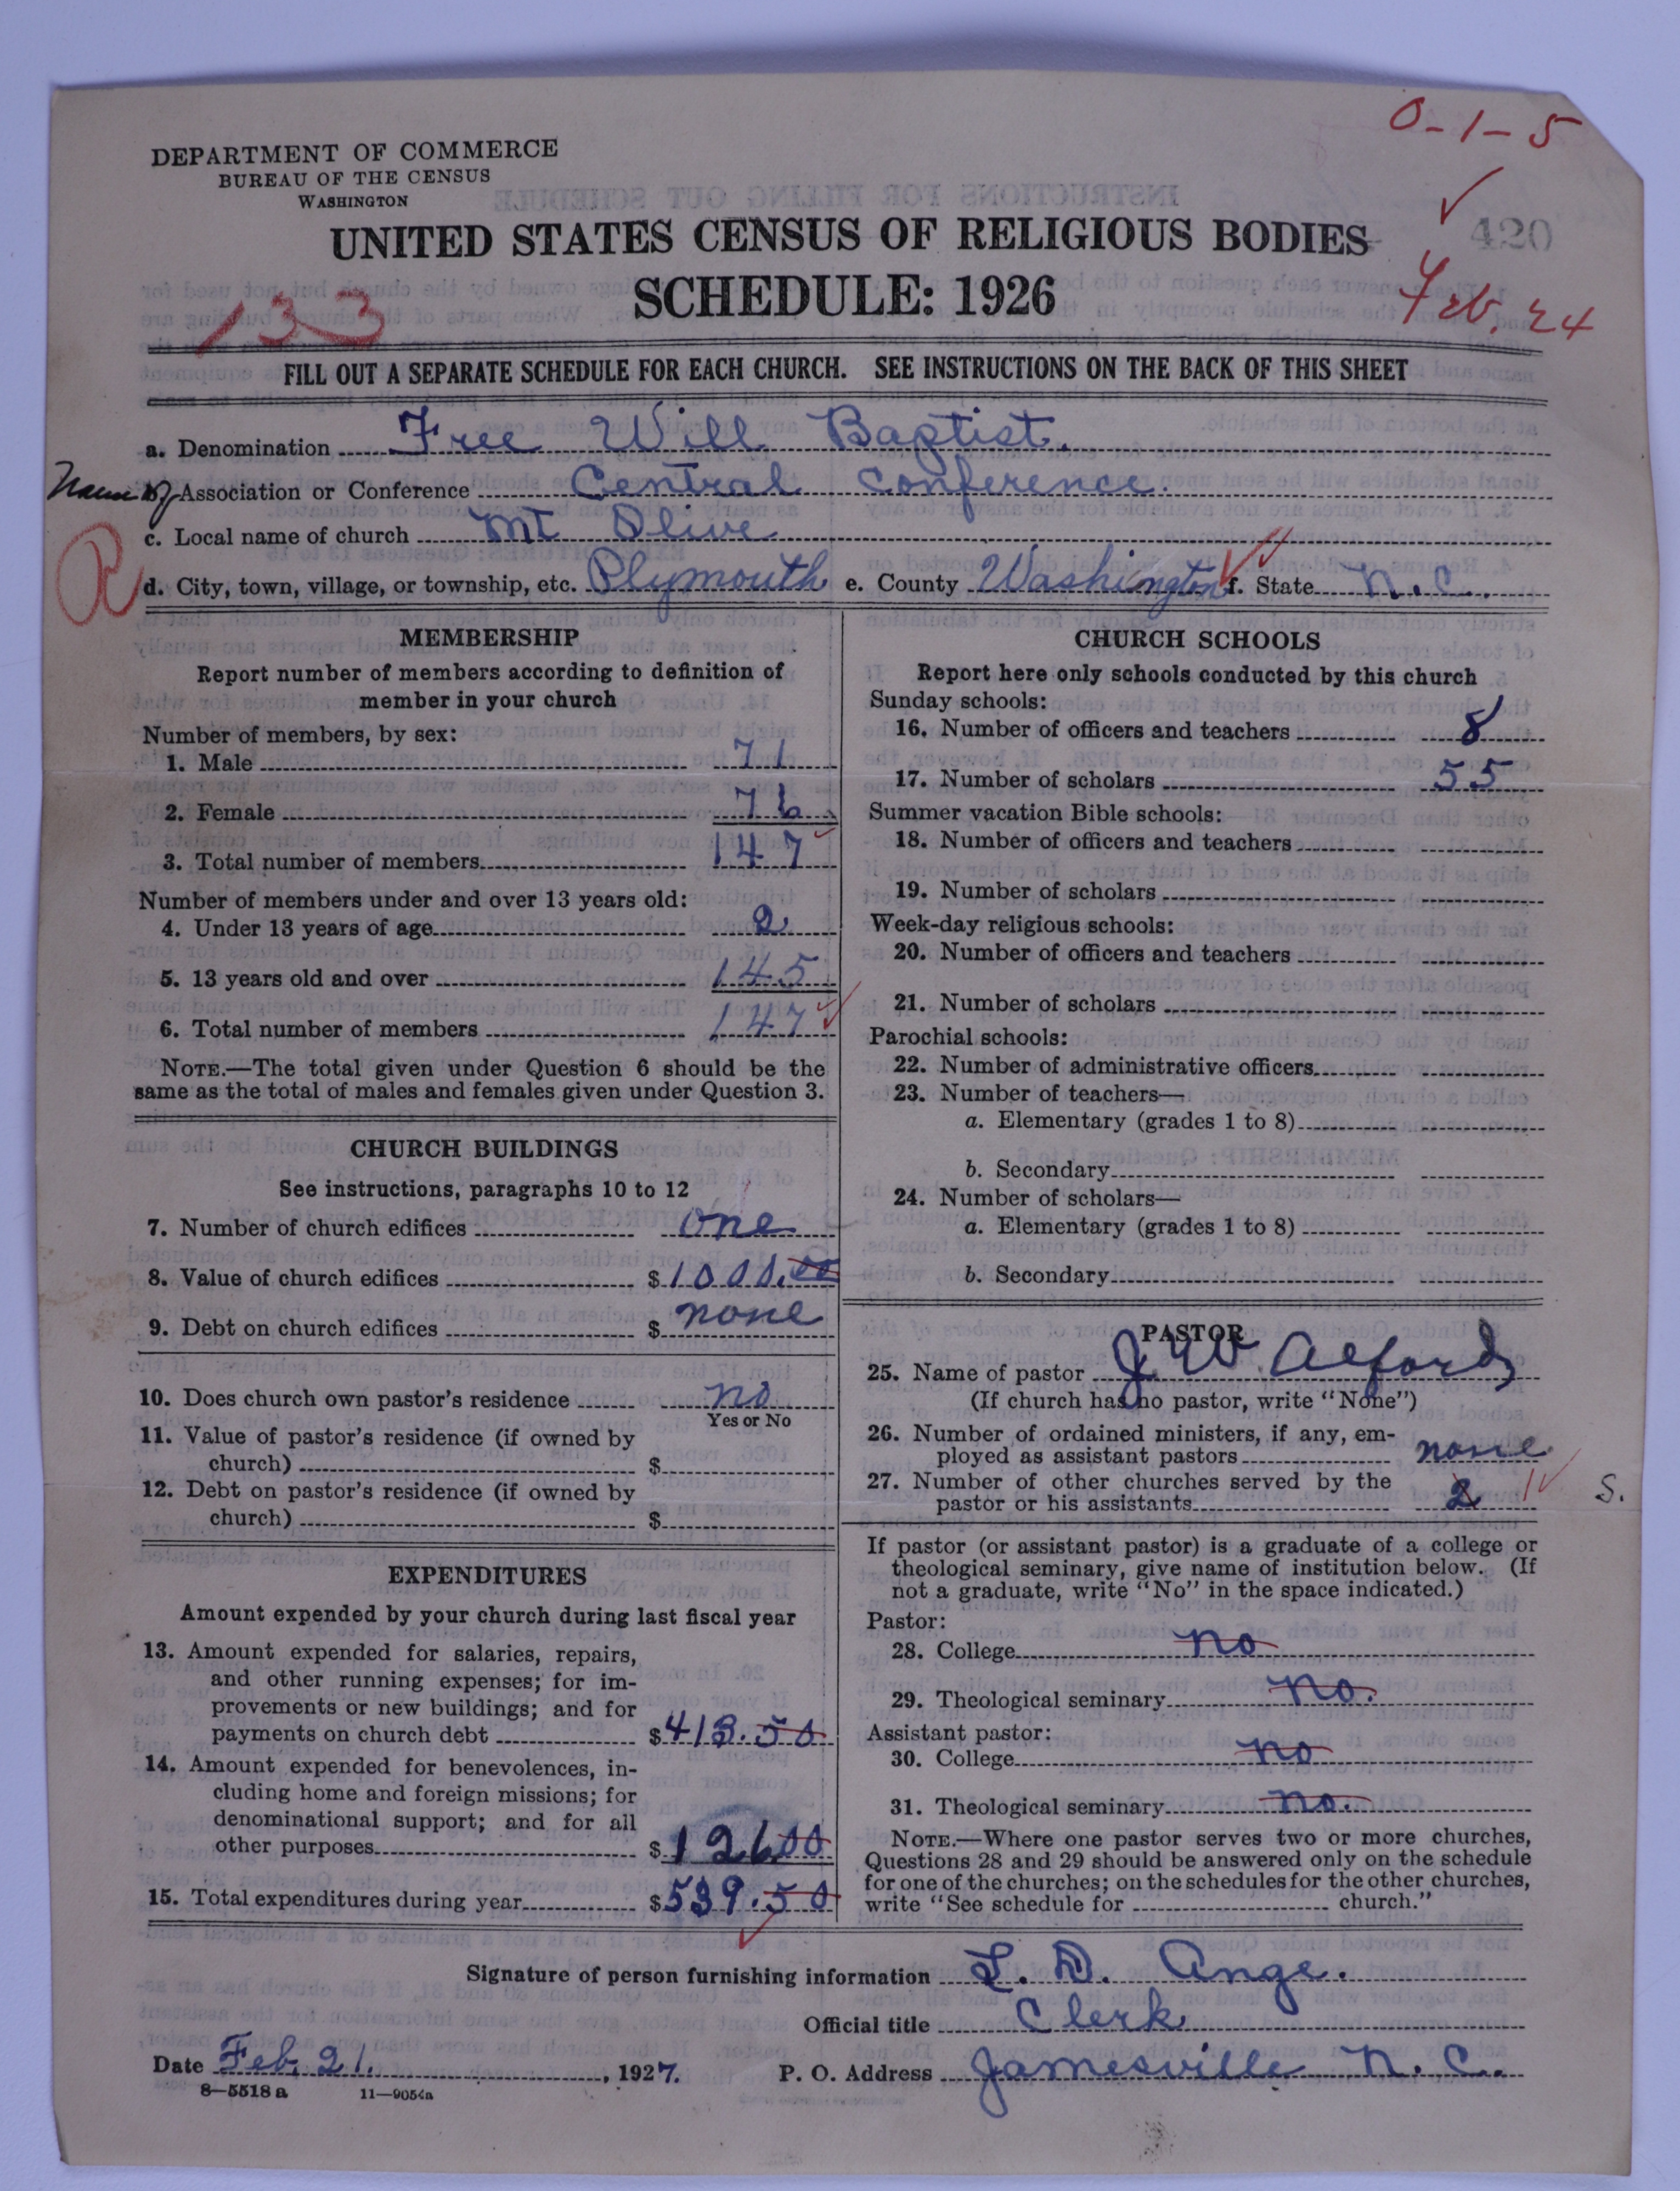 0-1-5
DEPARTMENT OF COMMERCE
BUREAU OF THE CENSUS
WASHINGTON
420
UNITED STATES CENSUS OF RELIGIOUS BODIES
SCHEDULE: 1926
133
Feb. 24
FILL OUT A SEPARATE SCHEDULE FOR EACH CHURCH. SEE INSTRUCTIONS ON THE BACK OF THIS SHEET
a. Denomination Free Will Baptist.
Name of Association or Conference Central Conference.
c. Local name of church Mt Olive
d. City, town, village, or township, etc. Plymouth e. County Washington f. State N.C.
MEMBERSHIP
Report number of members according to definition of
member in your church
Number of members, by sex:
1. Male 71
2. Female 76
3. Total number of members 147
Number of members under and over 13 years old:
4. Under 13 years of age 2
5. 13 years old and over 145
6. Total number of members 147
NOTE.—The total given under Question 6 should be the
same as the total of males and females given under Question 3.
CHURCH BUILDINGS
See instructions, paragraphs 10 to 12
7. Number of church edifices one
8. Value of church edifices $1000.00
9. Debt on church edifices $ none
10. Does church own pastor's residence no
Yes or No
11. Value of pastor's residence (if owned by
church) $
12. Debt on pastor's residence (if owned by
church) $
EXPENDITURES
Amount expended by your church during last fiscal year
13. Amount expended for salaries, repairs,
and other running expenses; for im-
provements or new buildings; and for
payments on church debt $413.50
14. Amount expended for benevolences, in-
cluding home and foreign missions; for
denominational support; and for all
other purposes $126 00
15. Total expenditures during year $539.50
CHURCH SCHOOLS
Report here only schools conducted by this church
Sunday schools:
16. Number of officers and teachers 8
17. Number of scholars 55
Summer vacation Bible schools:
18. Number of officers and teachers
19. Number of scholars
Week-day religious schools:
20. Number of officers and teachers
21. Number of scholars
Parochial schools:
22. Number of administrative officers
23. Number of teachers—
a. Elementary (grades 1 to 8)
b. Secondary
24. Number of scholars—
a. Elementary (grades 1 to 8)
b. Secondary
PASTOR
25. Name of pastor J W Alford
(If church has no pastor, write "None")
26. Number of ordained ministers, if any, em-
ployed as assistant pastors none
27. Number of other churches served by the
pastor or his assistants 2 1 S.
If pastor (or assistant pastor) is a graduate of a college or
theological seminary, give name of institution below. (If
not a graduate, write "No" in the space indicated.)
Pastor:
28. College no
29. Theological seminary no.
Assistant pastor:
30. College no
31. Theological seminary no.
NOTE.—Where one pastor serves two or more churches,
Questions 28 and 29 should be answered only on the schedule
for one of the churches; on the schedules for the other churches,
write "See schedule for church."
Signature of person furnishing information L. D. Ange.
Official title Clerk
Date Feb. 21. , 1927. P. O. Address Jamesville N. C.
8—5518 a 11—9054a